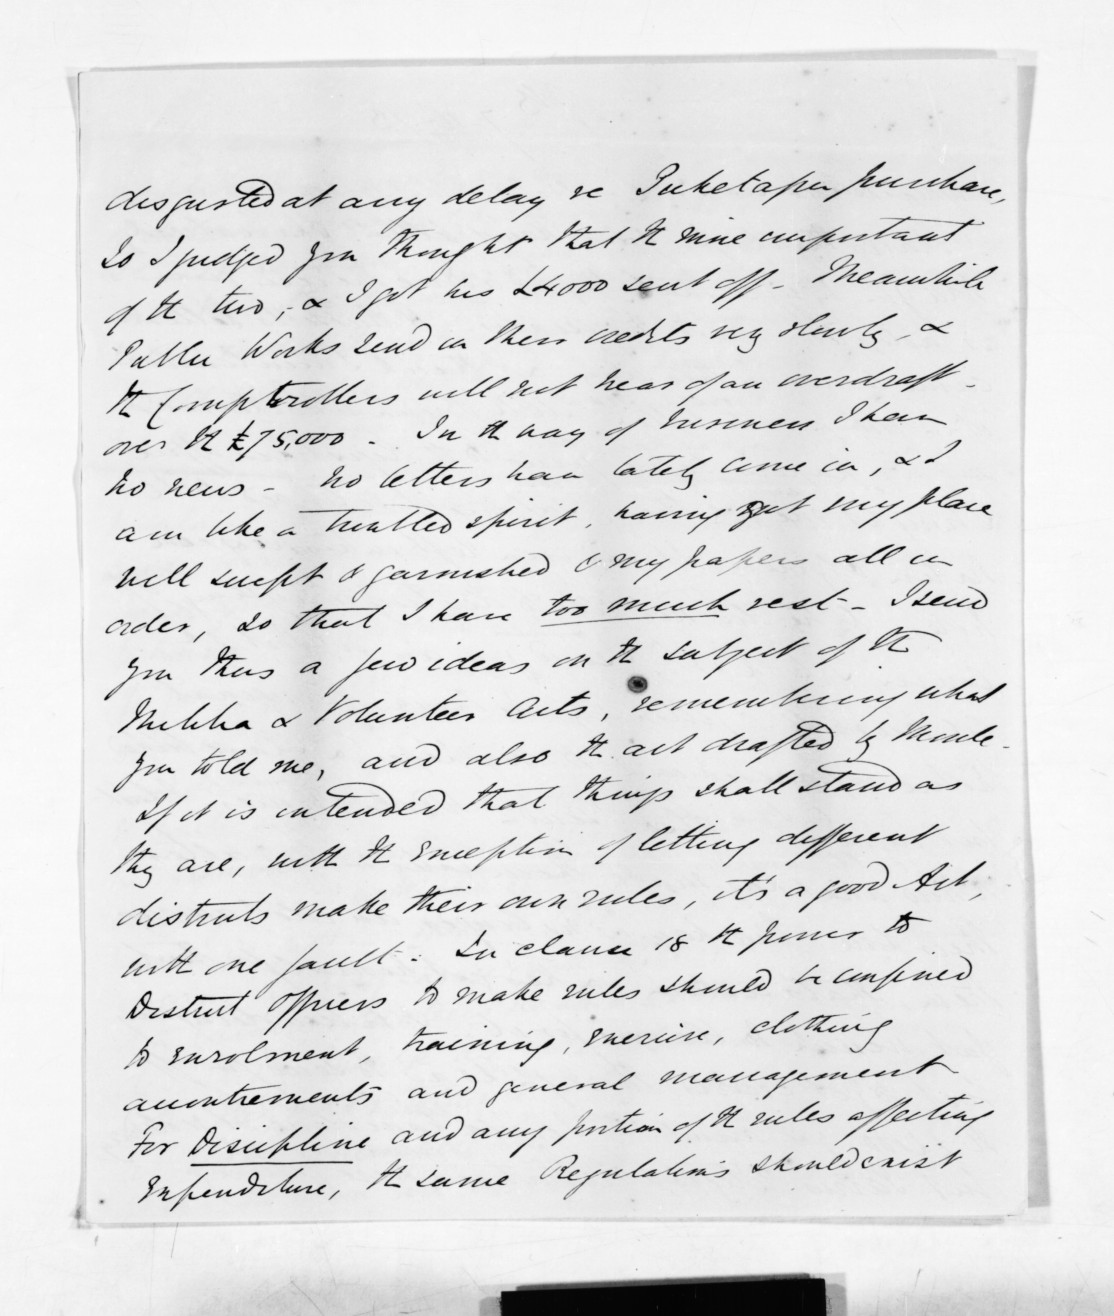 disgusted at any delay re Puketapu purchase,
So I judged you thought that the more important
of the two, & I got his £4000 sent off - Meanwhile
Public Works send in their credits very slowly, &
the Comptrollers will not hear of an overdraft -
over the £75,000 - In the way of business I have
no news - No letters have lately come in, & I
am like a troubled spirit, having got my place
well swept & garnished & my papers all in
order, so that I have too much rest - I send
you thus a few ideas on the subject of the
Militia & Volunteer Acts, remembering what
you told me, and also the act drafted by Moule -
If it is intended that things shall stand as
they are, with the exception of letting different
districts make their own rules, it's a good Act,
with one fault - In clause 18 the power to
District Officers to make rules should be confined
to enrolment, training, exercise, clothing
accoutrements and general management
For Discipline and any portion of the rules affecting
Expenditure, the same Regulations should exist